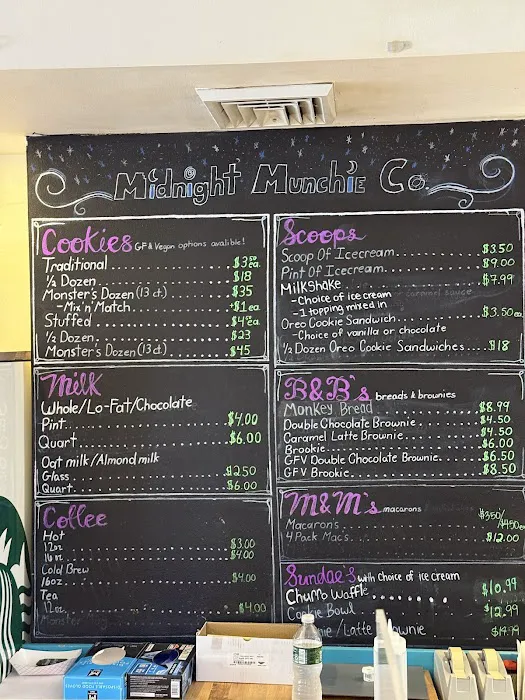 Midnight Munchie Co.
Cookies GF & Vegan options avalible!
Traditional $3.50 ea.
½ Dozen $18
Monster's Dozen (13 ct.) $35
-Mix 'n' Match +$1 ea
Stuffed
½ Dozen $23
Monster's Dozen (13 ct) $45
Milk
Whole/Lo-Fat/Chocolate
Pint $4.00
Quart $6.00
Oat milk/Almond milk
Glass $2.50
Quart $6.00
Coffee
Hot
12oz $3.00
16oz $4.00
Cold Brew
16oz. $4.00
Tea
12oz. $4.00
Monster
Scoops
Scoop Of Icecream $3.50
Pint Of Icecream $9.00
Milkshake $7.99
-Choice of ice cream
-1 topping mixed in
Oreo Cookie Sandwich $3.50 ea.
-Choice of vanilla or chocolate
½ Dozen Oreo Cookie Sandwiches $18
B&B's breads & brownies
Monkey Bread $8.99
Double Chocolate Brownie $4.50
Caramel Latte Brownie $4.50
Brookie $6.00
GFV Double Chocolate Brownie $6.50
GFV Brookie $8.50
M&M's macarons
Macarons $3.50/
4 Pack Mac's $12.00
Sundae's with choice of ice cream
Churro Waffle $10.99
Cookie Bowl $12.99
/Latte Brownie $14.99